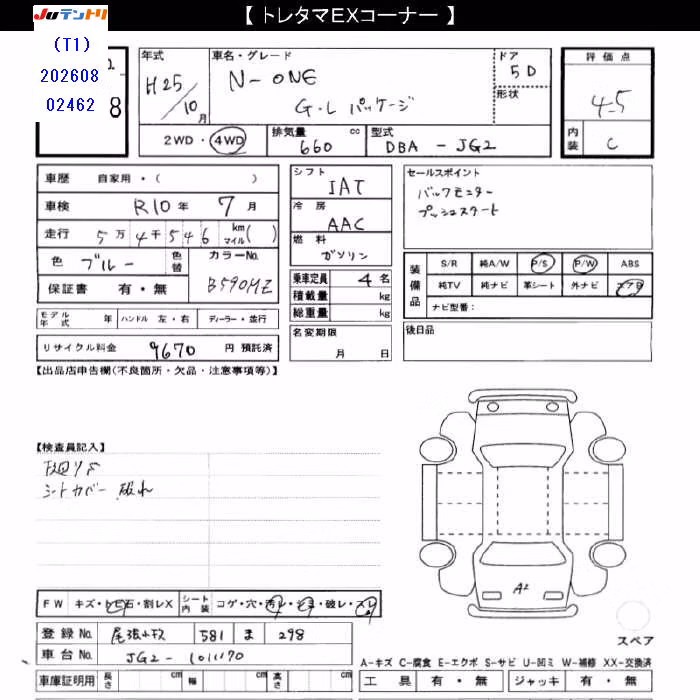 【 トレタマEXコーナー 】
JUテントリ
(T1)
202608
02462
8
年式 H25/10月
車名・グレード N-ONE
G・L パッケージ
ドア 5D
形状
評価点 4.5
内装 C
2WD・4WD
排気量 660 cc
型式 DBA - JG2
車歴 自家用・( )
車検 R10年 7月
走行 5万4千546 km マイル( )
色 ブルー 色替
カラーNo. B590MZ
保証書 有・無
シフト IAT
冷房 AAC
燃料 ガソリン
乗車定員 4名
積載量 kg
総重量 kg
セールスポイント
バックモニター
プッシュスタート
装備品
S/R 純A/W P/S P/W ABS
純TV 純ナビ 革シート 外ナビ エアB
ナビ型番:
モデル年式 年 ハンドル 左・右 ディーラー・並行
リサイクル料金 9670 円 預託済
名変期限 月 日
後日品
【出品店申告欄(不良箇所・欠品・注意事項等)】
【検査員記入】
シートカバー 破れ
FW キズ・トビ石・割レX
シート内装 コゲ・穴・汚レ・シミ・破レ・スレ
登録No. 尾張小牧 581 ま 298
車台No. JG2 - 1011170
車庫証明用 長さ cm 幅 cm 高さ cm
A2
スペア
A-キズ C-腐食 E-エクボ S-サビ U-凹ミ W-補修 XX-交換済
工具 有・無 ジャッキ 有・無